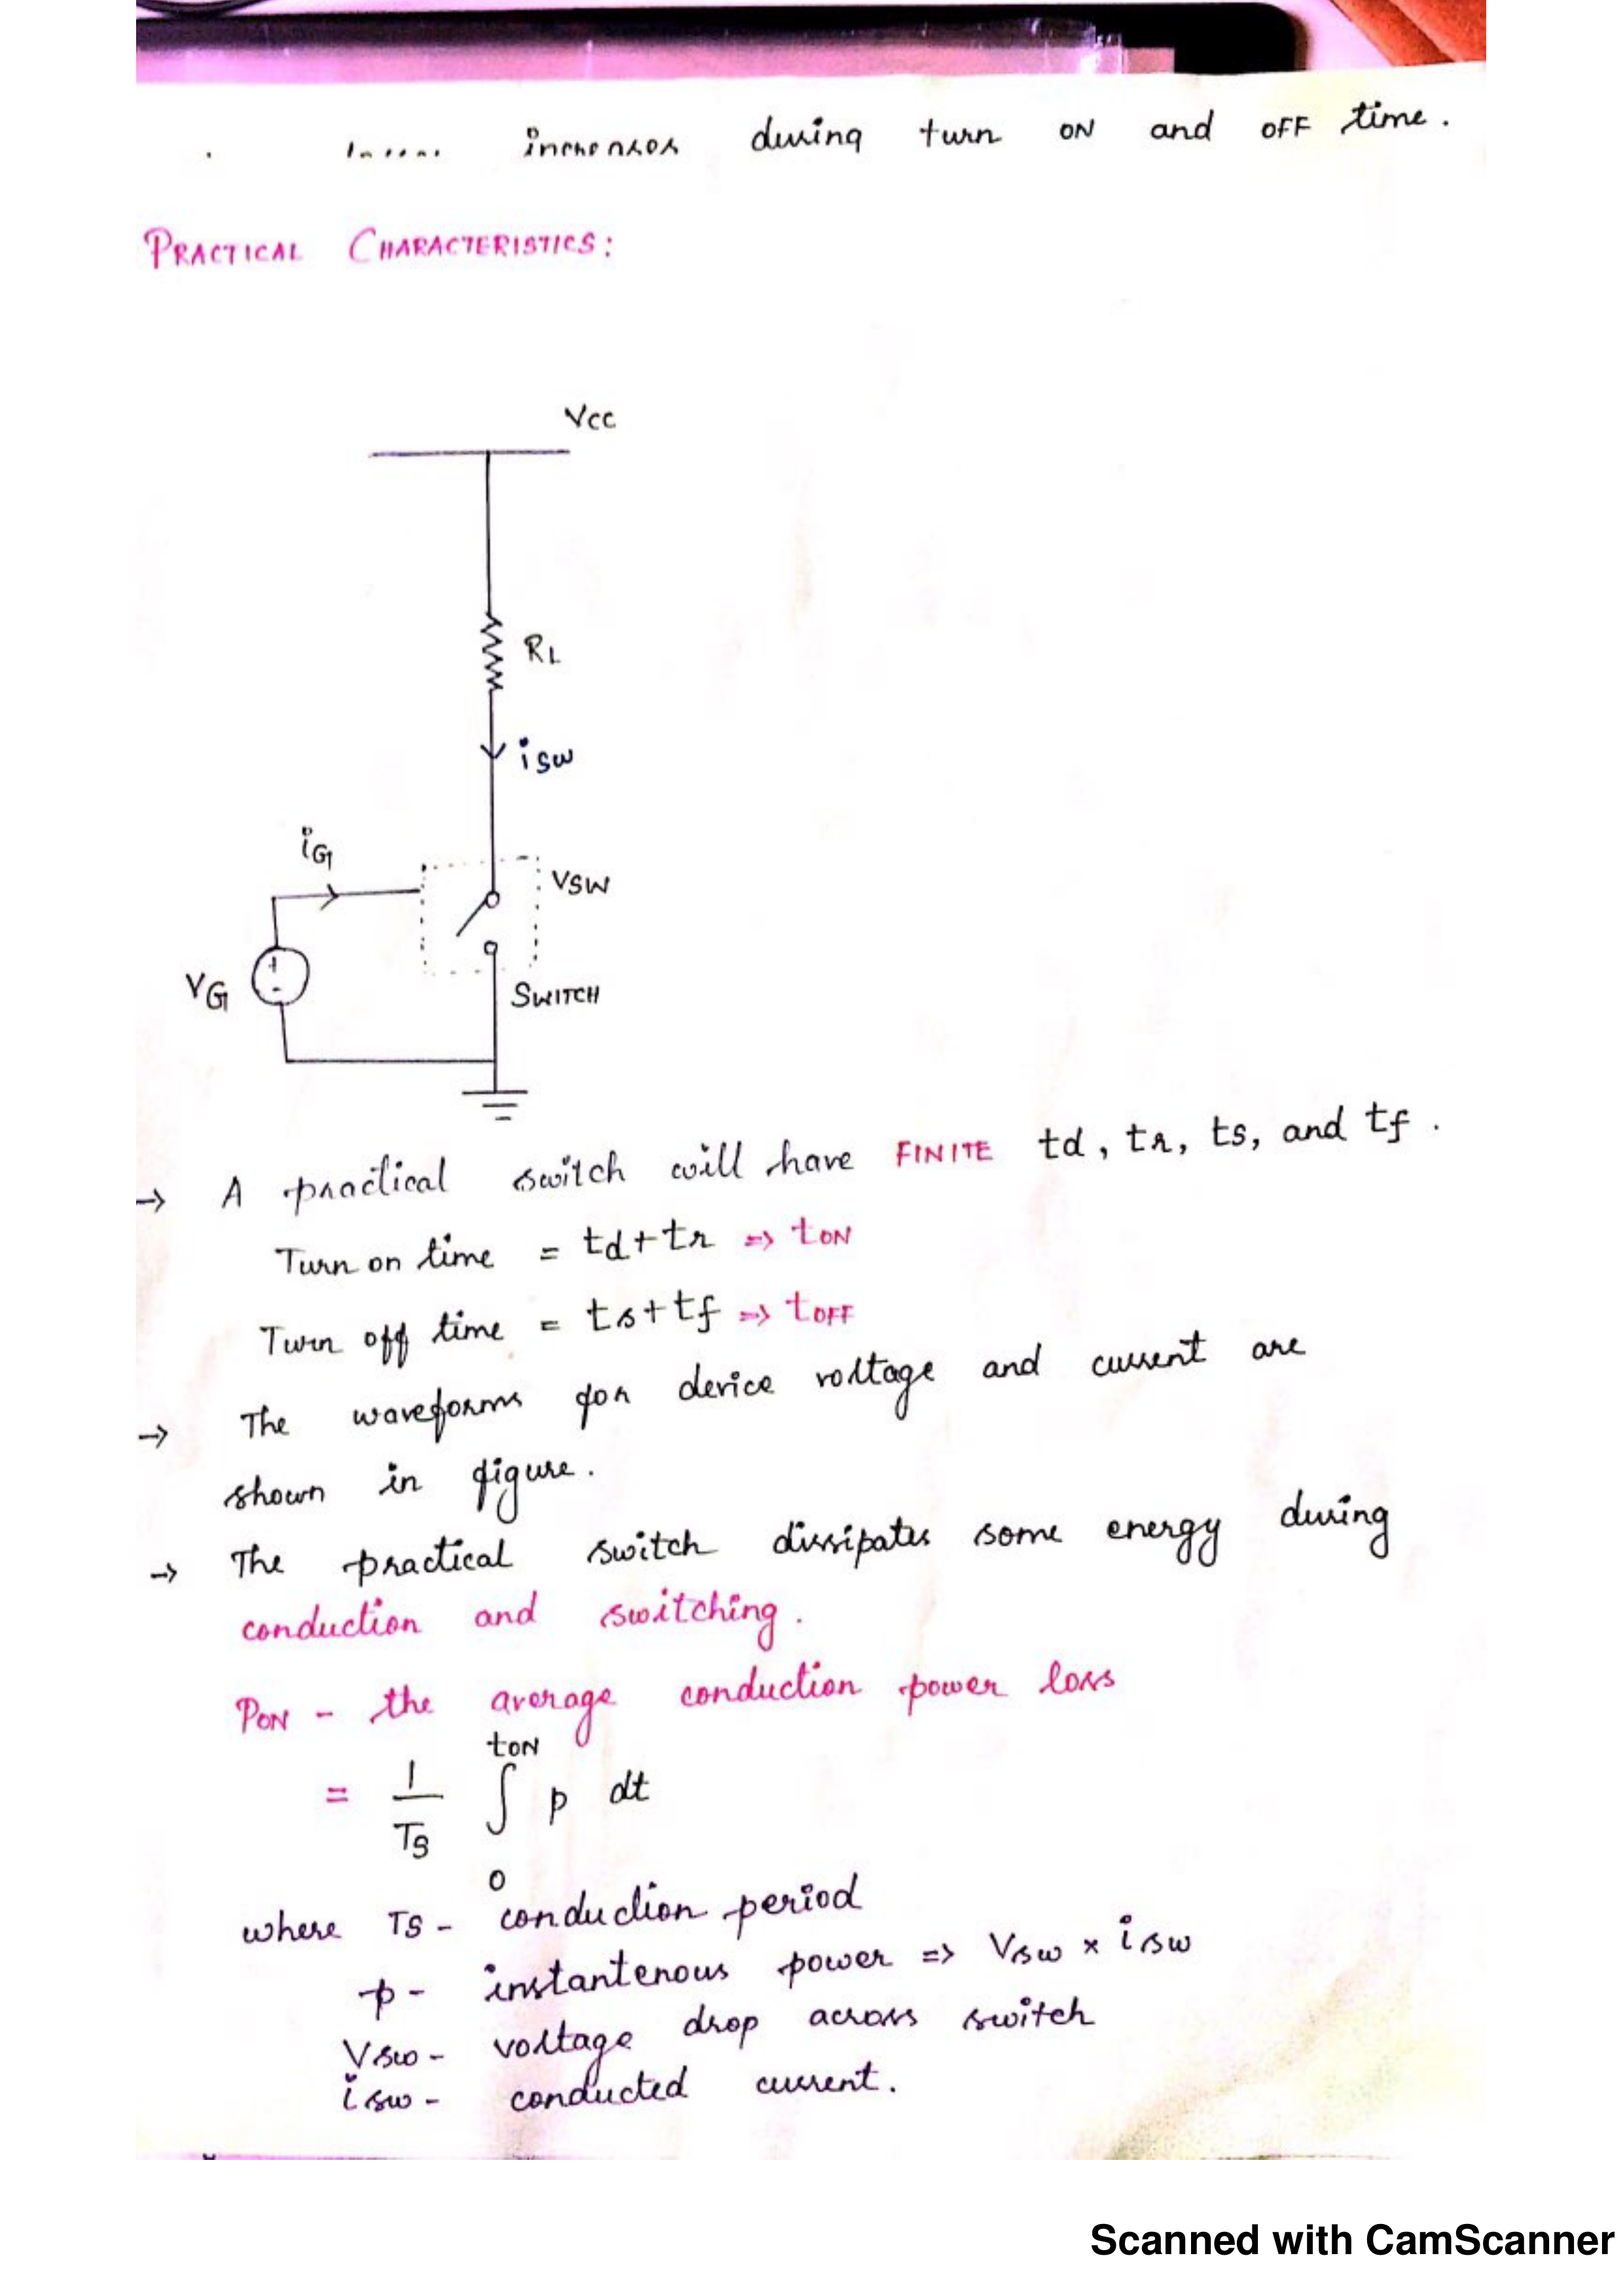 increases during turn ON and OFF time.
PRACTICAL CHARACTERISTICS:
Vcc
RL
isw
iG
Vsw
VG
+
-
SWITCH
→ A practical switch will have FINITE td, tr, ts, and tf.
Turn on time = td+tr => tON
Turn off time = ts+tf => tOFF
→ The waveforms for device voltage and current are
shown in figure.
→ The practical switch dissipates some energy during
conduction and switching.
PON - the average conduction power loss
= 1/Ts ∫ 0 tON p dt
where Ts - conduction period
p - instantenous power => Vsw × isw
Vsw - voltage drop across switch
isw - conducted current.
Scanned with CamScanner